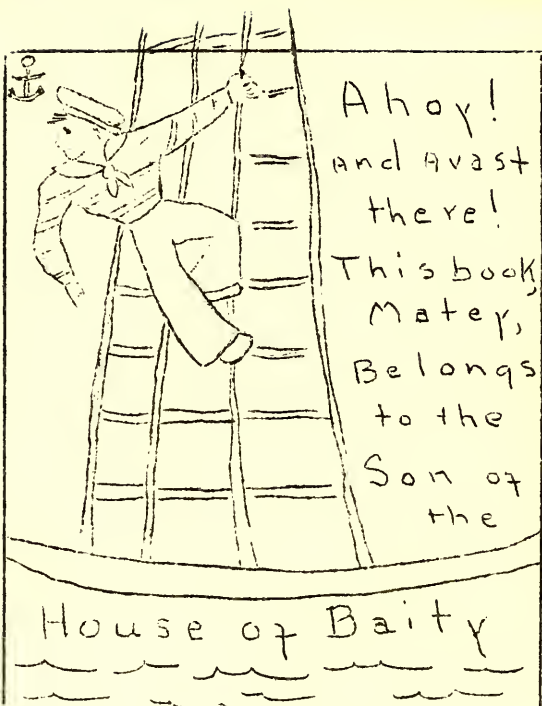 Ahoy!
And Avast
there!
This book,
Matey,
Belongs
to the
Son of
the
House of Baity